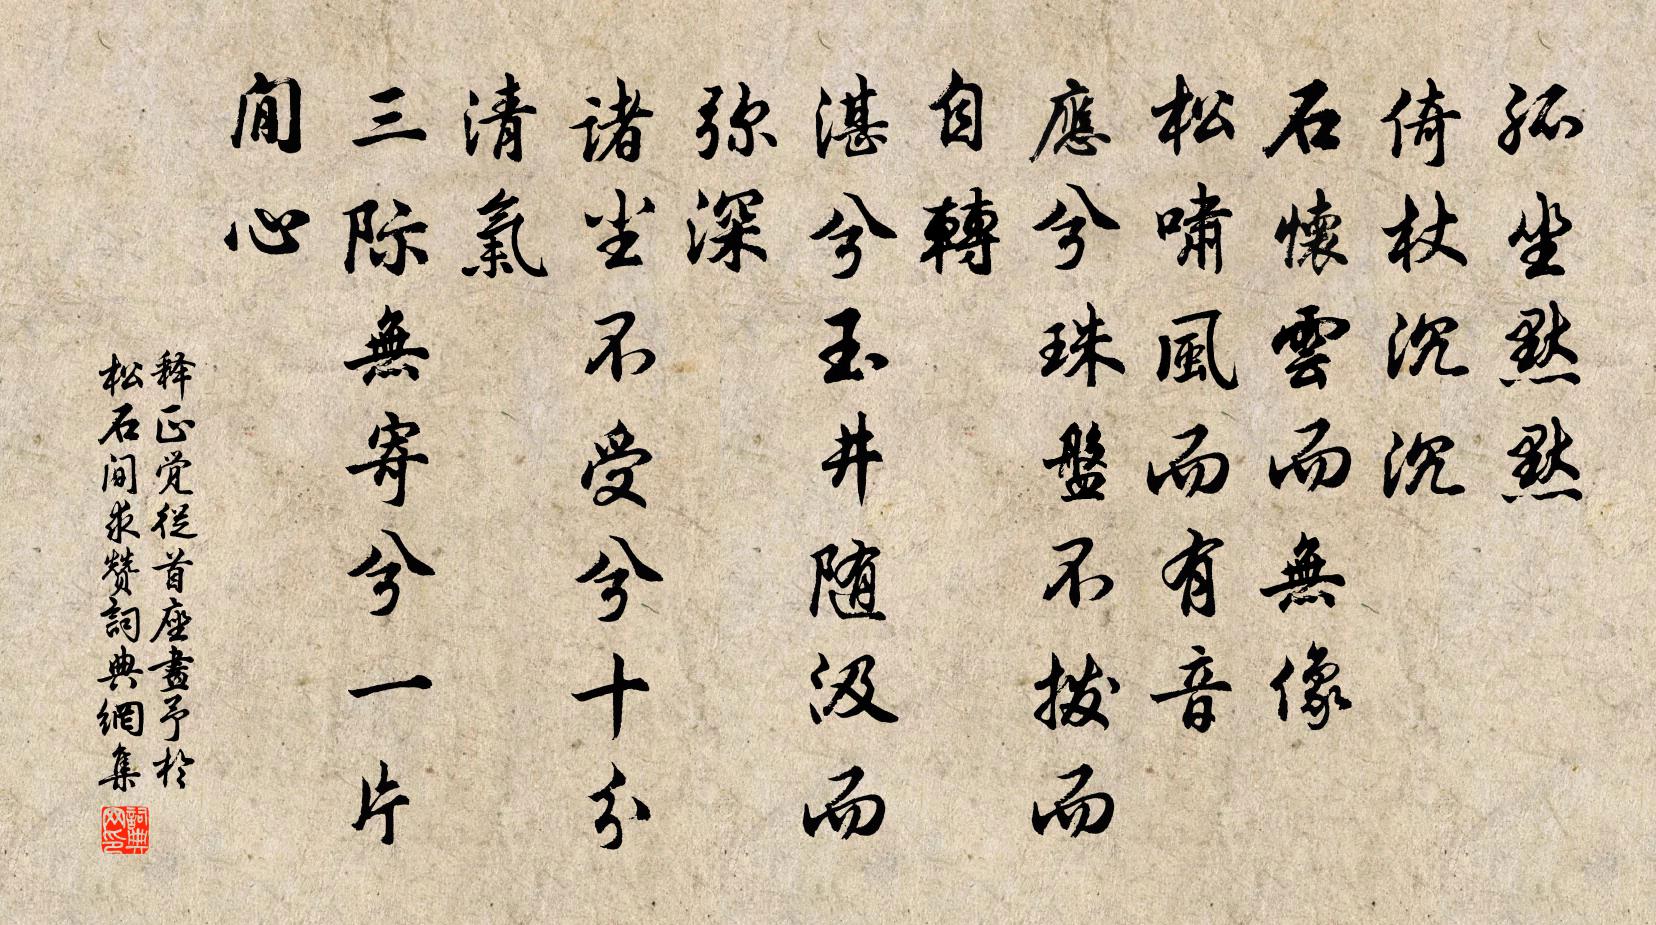 孤坐默默
倚杖沉沉
石懷雲而無像
松嘯風而有音
應兮珠盤不撥而
自轉
湛兮玉井随汲而
弥深
诸尘不受兮十分
清氣
三际無寄兮一片
閒心
释正觉從首座畫予於
松石间求赞詞典網集
詞典
网印